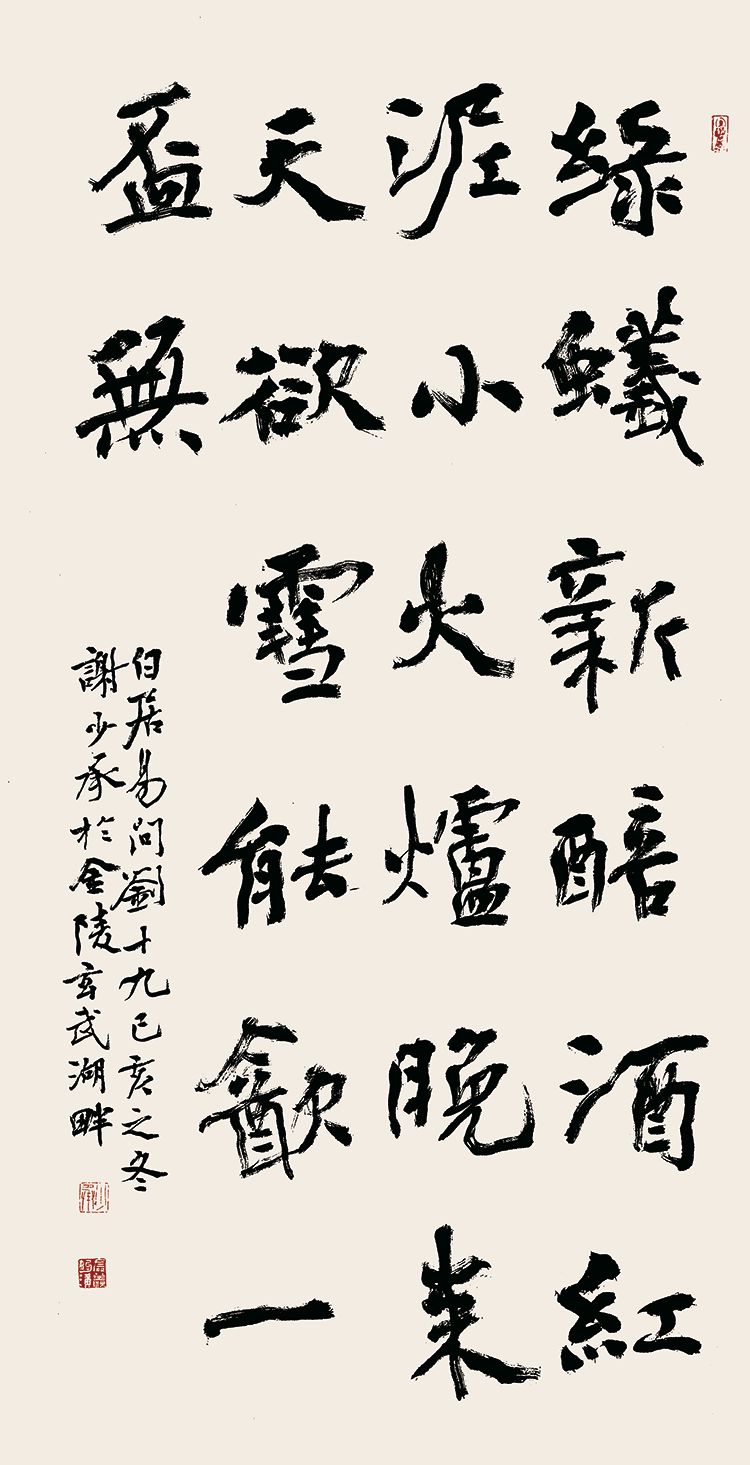 綠蟻新醅酒紅
泥小火爐晚来
天欲雪能㱃一
盃無
白居易問劉十九己亥之冬
謝少承於金陵玄武湖畔